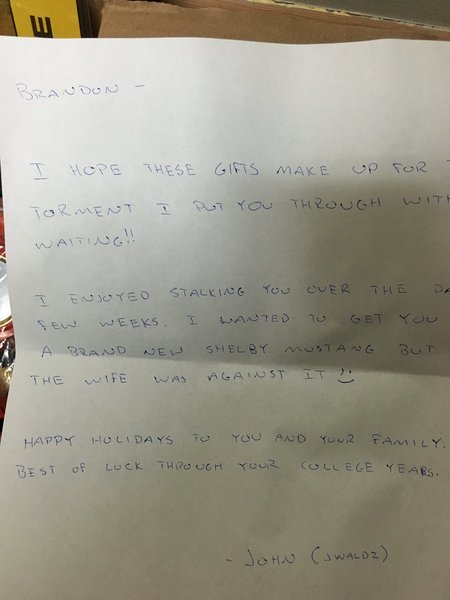 BRANDON -
I HOPE THESE GIFTS MAKE UP FOR
TORMENT I PUT YOU THROUGH WITH
WAITING!!
I ENJOYED STALKING YOU OVER THE PA
FEW WEEKS. I WANTED TO GET YOU
A BRAND NEW SHELBY MUSTANG BUT
THE WIFE WAS AGAINST IT :)
HAPPY HOLIDAYS TO YOU AND YOUR FAMILY.
BEST OF LUCK THROUGH YOUR COLLEGE YEARS.
- JOHN (JWALDZ)